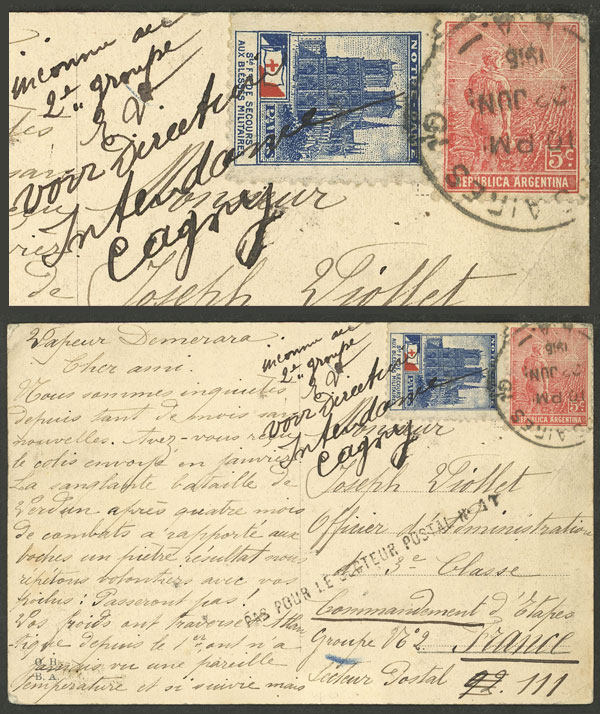 inconnu au
2e groupe
E V
voir Direction
Intendance
Cagny
NOTRE DAME
PARIS
Sté FSE DE SECOURS
AUX BLESSÉS MILITAIRES
1916
22 JUN.
10 PM
AIRES
5c
REPUBLICA ARGENTINA
Monsieur
de Joseph Viollet
Vapeur Demerara
Cher ami.
Nous sommes inquiets
depuis tant de mois sans
nouvelles. Avez-vous reçu
le colis envoyé en janvier
La sanglante bataille de
Verdun après quatre mois
de combats a rapporté aux
boches un piètre résultat nous
répétons volontiers avec vos
poilus: Passeront pas!
Vos froids ont traversé l'Atlan
tique depuis le 1er, on n'a
jamais vu une pareille
température et si suivie mais
G. B.
B. A.
inconnu au
2e groupe
E V
voir Direction
Intendance
Cagny
NOTRE DAME
PARIS
Sté FSE DE SECOURS
AUX BLESSÉS MILITAIRES
1916
22 JUN.
10 PM
AIRES
5c
REPUBLICA ARGENTINA
Monsieur
Joseph Viollet
Officier d'Administration
3e Classe
PAS POUR LE SECTEUR POSTAL N° 47
Commandement d'Etapes
Groupe N°2. France
Secteur Postal 92. 111